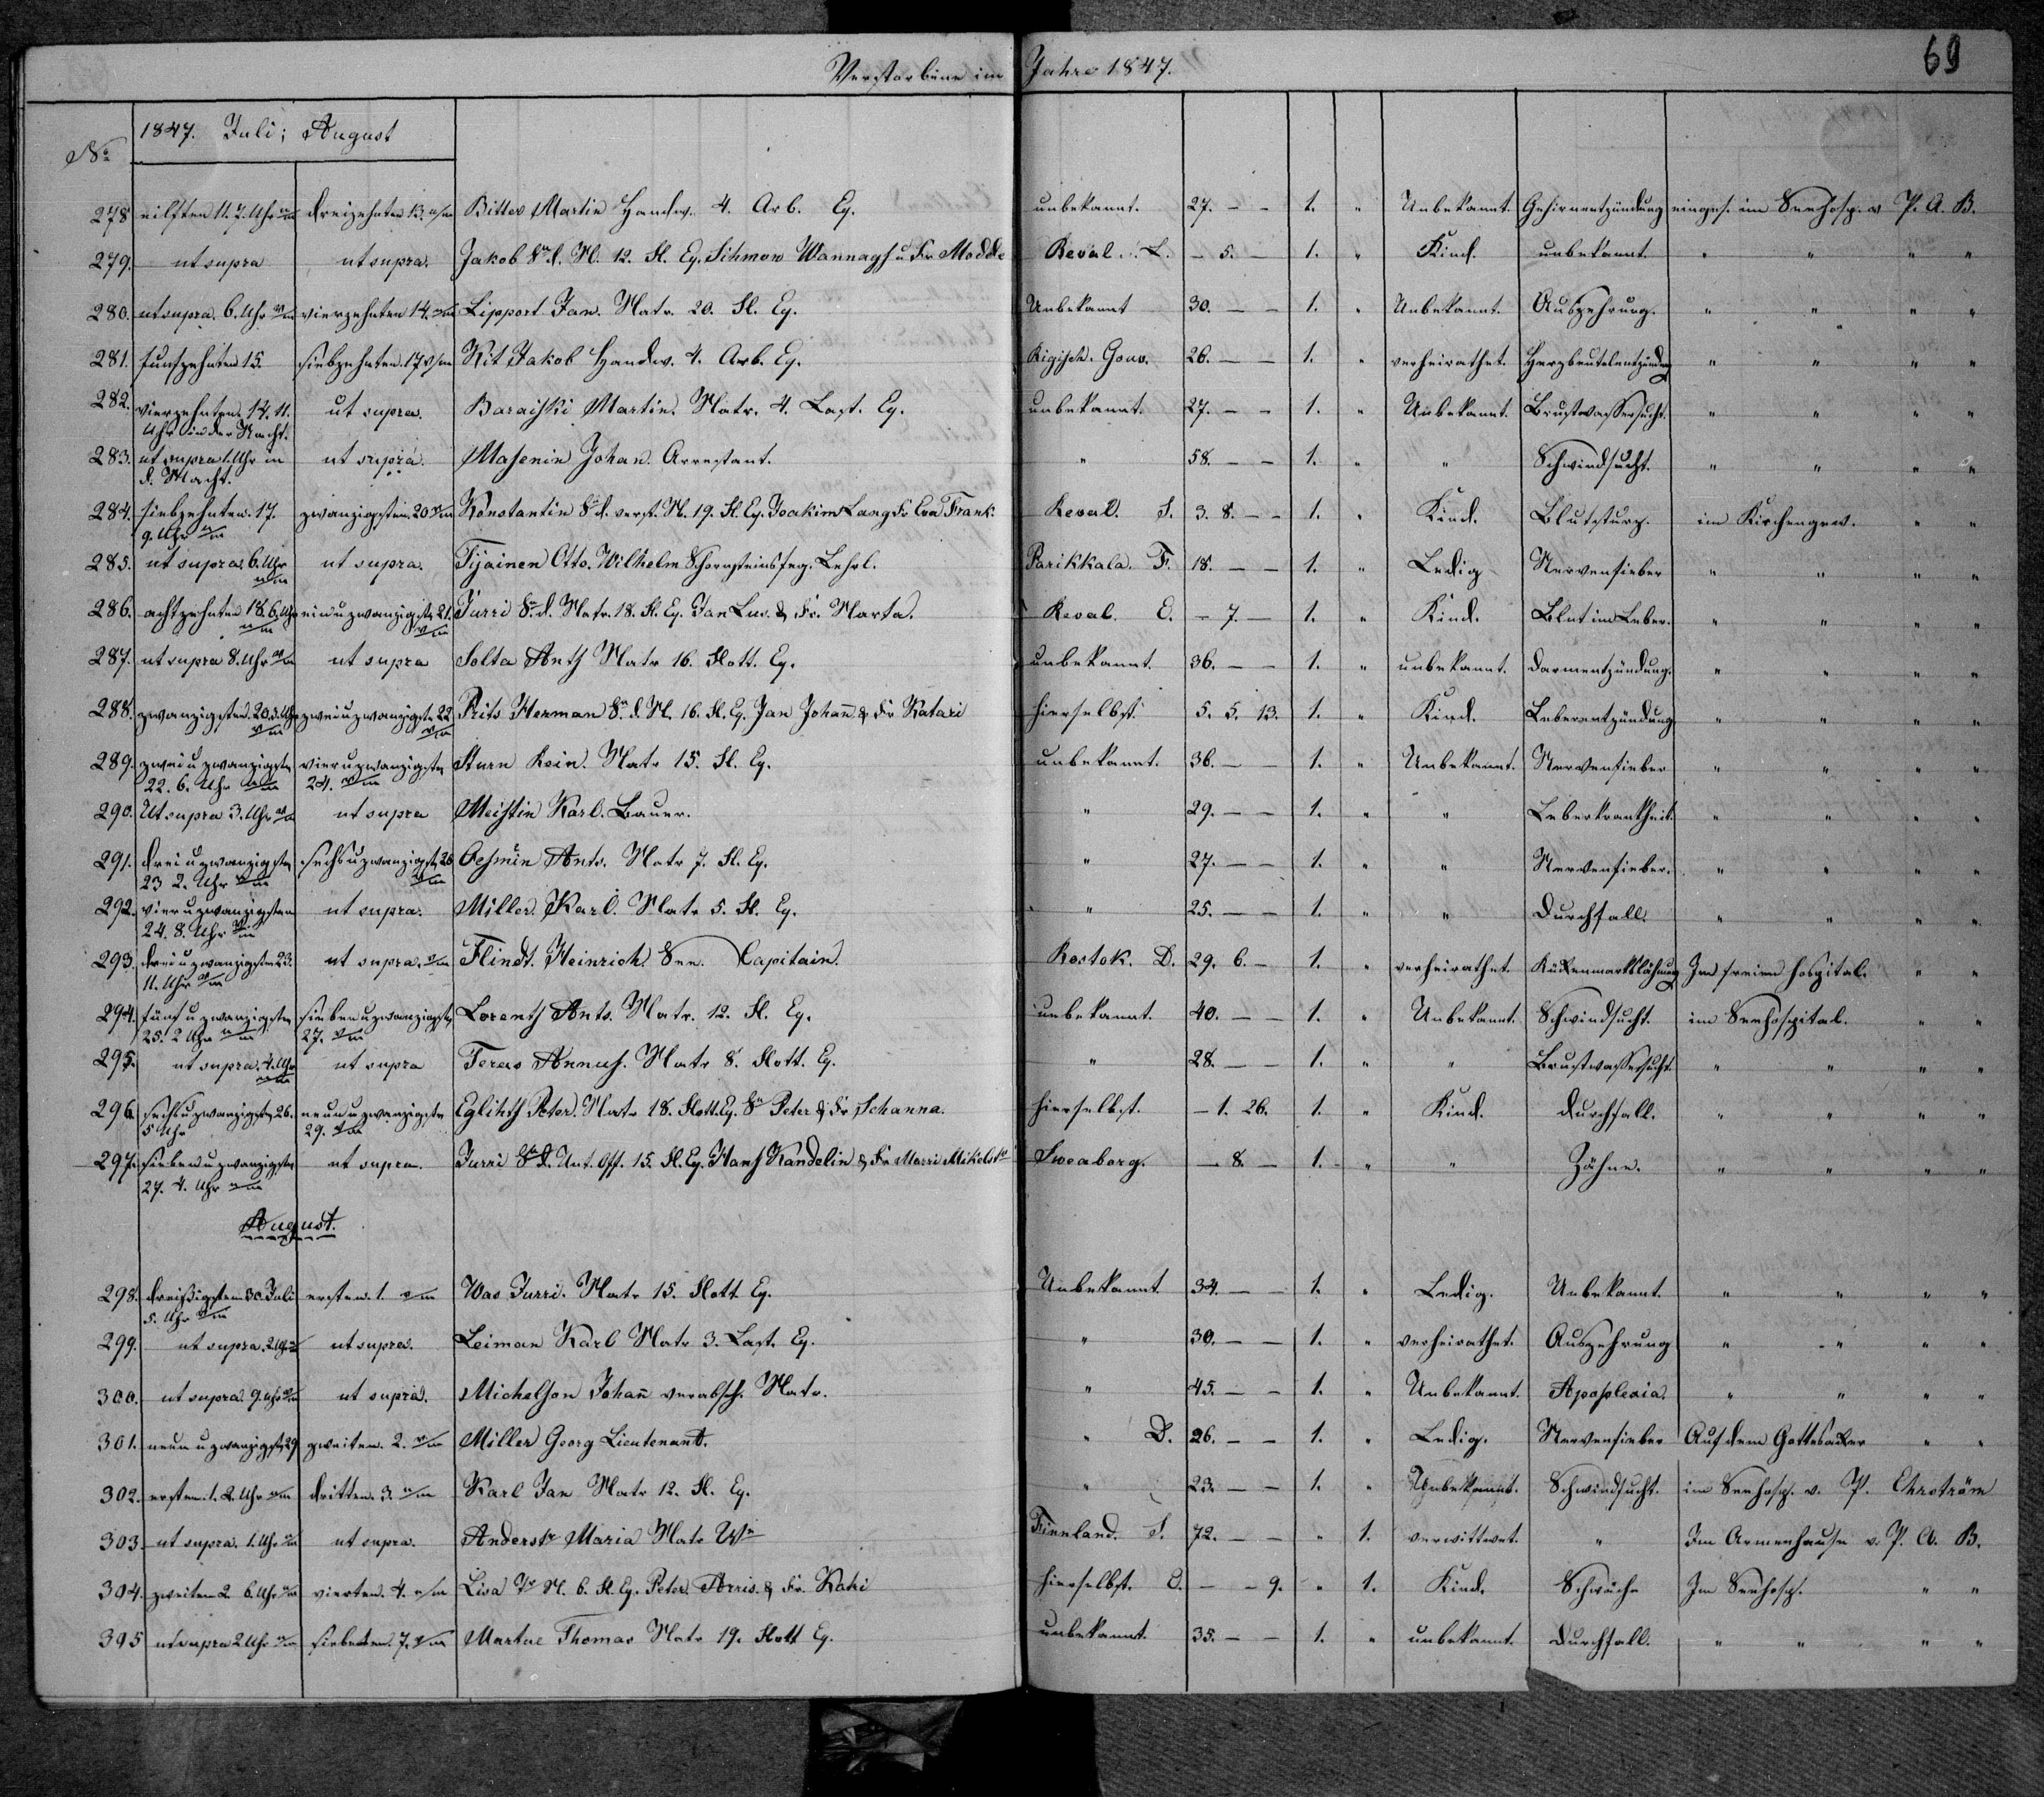 Verstorbene im Jahre 1847.
69
No 1847. Juli; August
278 eilften 11. 7. Uhr n/m dreizehnten 13. n/m Bitter Martin Handw. 4. Arb. Eq. unbekannt. 27. – – 1. " Unbekannt. Gehirnentzündung einges. im Seehosp. v P. A. B.
279. ut supra ut supra. Jakob Sn d. M. 12. Fl. Eq. Sihmon Wannags u Fr Madde Reval. L. – 5. – 1. " Kind. unbekannt. " " " "
280. ut supra. 6. Uhr vierzehnten 14. Lippert Jan. Matr. 20. Fl. Eq. Unbekannt 30. – – 1. " Unbekannt. Auszehrung. " " " "
281. funfzehnten 15. siebzehnten 17 v/m Kit Jakob Handw. 4. Arb. Eq. Rigisch. Gouv. 26. – – 1. " verheirathet. Herzbeutelentzündung " " " "
282. vierzehnten 14. 11. ut supra. Baraiski Martin. Matr. 4. Last. Eq. unbekannt. 27. – – 1. " Unbekannt. Brustwassersucht. " " " "
Uhr in der Nacht.
283. ut supra 1. Uhr in ut supra. Masenin Johan. Arrestant. " 58. – – 1. " " Schwindsucht. " " " "
d. Nacht.
284. siebzehnten. 17. zwanzigsten 20 Konstantin Sn d. verst. M. 19. Fl. Eq. Joakim Lang Fr Eva Frank. Reval. S. 3. 8. – – 1. " Kind. Blutsturz. im Kirchengew. " "
9. Uhr
285. ut supra. 6. Uhr ut supra. Tijainen Otto. Wilhelm Schornsteinfeg. Lehrl. Parikkala. F. 18. – – 1. " Ledig Nervenfieber " " " "
286. achtzehnten 18. 6. Uhr einuzwanzigstn 21. Jurri Sn d. Matr. 18. Fl. Eq. Jan Lus. & Fr. Marta. Reval. E. – 7. – 1. " Kind. Blut im Leber. " " " "
287. ut supra 8. Uhr ut supra Solta Ants Matr 16. Flott. Eq. unbekannt. 36. – – 1. " unbekannt. Darmentzündung. " " " "
288. zwanzigsten 20. 3. Uhr zweiuzwanzigstn 22. Frits Herman Sn. d. M. 16. Fl. Eq. Jan Johan̄ & Fr Katari hierselbst. 5. 5. 13. 1. " Kind. Leberentzündung " " " "
289. zweiuzwanzigsten vieruzwanzigsten Sturn Rein. Matr 15. Fl. Eq. unbekannt. 36. – – 1. " Unbekannt. Nervenfieber " " " "
22. 6. Uhr 24.
290. Ut supra 3. Uhr ut supra Meistin Karl. Bauer. " 29. – – 1. " " Leberkrankheit. " " " "
291. dreiuzwanzigsten sechsuzwanzigstn 26 Oesmin Ants. Matr 7. Fl. Eq. " 27. – – 1. " " Nervenfieber. " " " "
23 2. Uhr
292. vieruzwanzigsten ut supra. Miller. Karl. Matr 5. Fl. Eq. " 25. – – 1. " " Durchfall. " " " "
24. 8. Uhr
293. dreiuzwanzigsten 23. ut supra. Flindt. Heinrich. See. Capitain. Rostok. D. 29. 6. – 1. " verheirathet. Rückenmarkslähmung Im freien Hospital. " "
11. Uhr
294. fünfuzwanzigsten siebenuzwanzigstn Lorents Ants. Matr. 12. Fl. Eq. unbekannt. 40. – – 1. " Unbekannt. Schwindsucht. im Seehospital. " "
25. 2 Uhr 27.
295. ut supra. 4. Uhr ut supra Teras Annus. Matr 8. Flott. Eq. " 28. – – 1. " " Brustwassersucht. " " " "
296. sechsuzwanzigstn 26. neunuzwanzigsten Eglihts Peter. Matr 18. Flott. Eq. Sn Peter & Fr Johanna. hierselbst. – 1. 26. 1. " Kind. Durchfall. " " " "
5 Uhr 29.
297. siebenuzwanzigsten ut supra. Jurri Sn d. Unt. Off. 15. Fl. Eq. Hans Kandelin & Fr Marri Mikelstr Sweaborg. – 8. – 1. " " Zähne. " " " "
27. 4. Uhr
August.
298. dreißigsten 30. Juli ersten 1. Was Jurri. Matr 15. Flott Eq. Unbekannt 34. – – 1. " Ledig. Unbekannt. " " " "
5. Uhr
299. ut supra. 2 Uhr ut supra. Leiman Karl Matr 3. Last. Eq. " 30. – – 1. " verheirathet. Auszehrung " " " "
300. ut supra. 9. Uhr ut supra. Michelson Johan̄ verabsch. Matr. " 45. – – 1. " Unbekannt. Apoplexia. " " " "
301. neunuzwanzigstn 29 zweiten. 2. Miller Georg Lieutenant. " D. 26. – – 1. " Ledig. Nervenfieber Auf dem Gottesacker " "
302. ersten. 1. 2. Uhr dritten. 3. Karl Jan Matr 12. Fl. Eq. " 23. – – 1. " Unbekannt. Schwindsucht. im Seehosp. v. P. Ehrström
303. ut supra. 1. Uhr ut supra. Anderstr Maria Matr Wn Finnland. S. 72. – – " 1. verwittwet. " Im Armenhause v. P. A. B.
304. zweiten 2. 6. Uhr vierten. 4. Lisa Tr M. 6. Fl. Eq. Peter. Arris. & Fr. Kati hierselbst. E. – – 9. " 1. Kind. Schwäche Im Seehosp. " "
395 ut supra 2 Uhr siebenten. 7. Martue Thomas Matr 19. Flott Eq. unbekannt. 35. – – 1. " unbekannt. Durchfall. " " " "